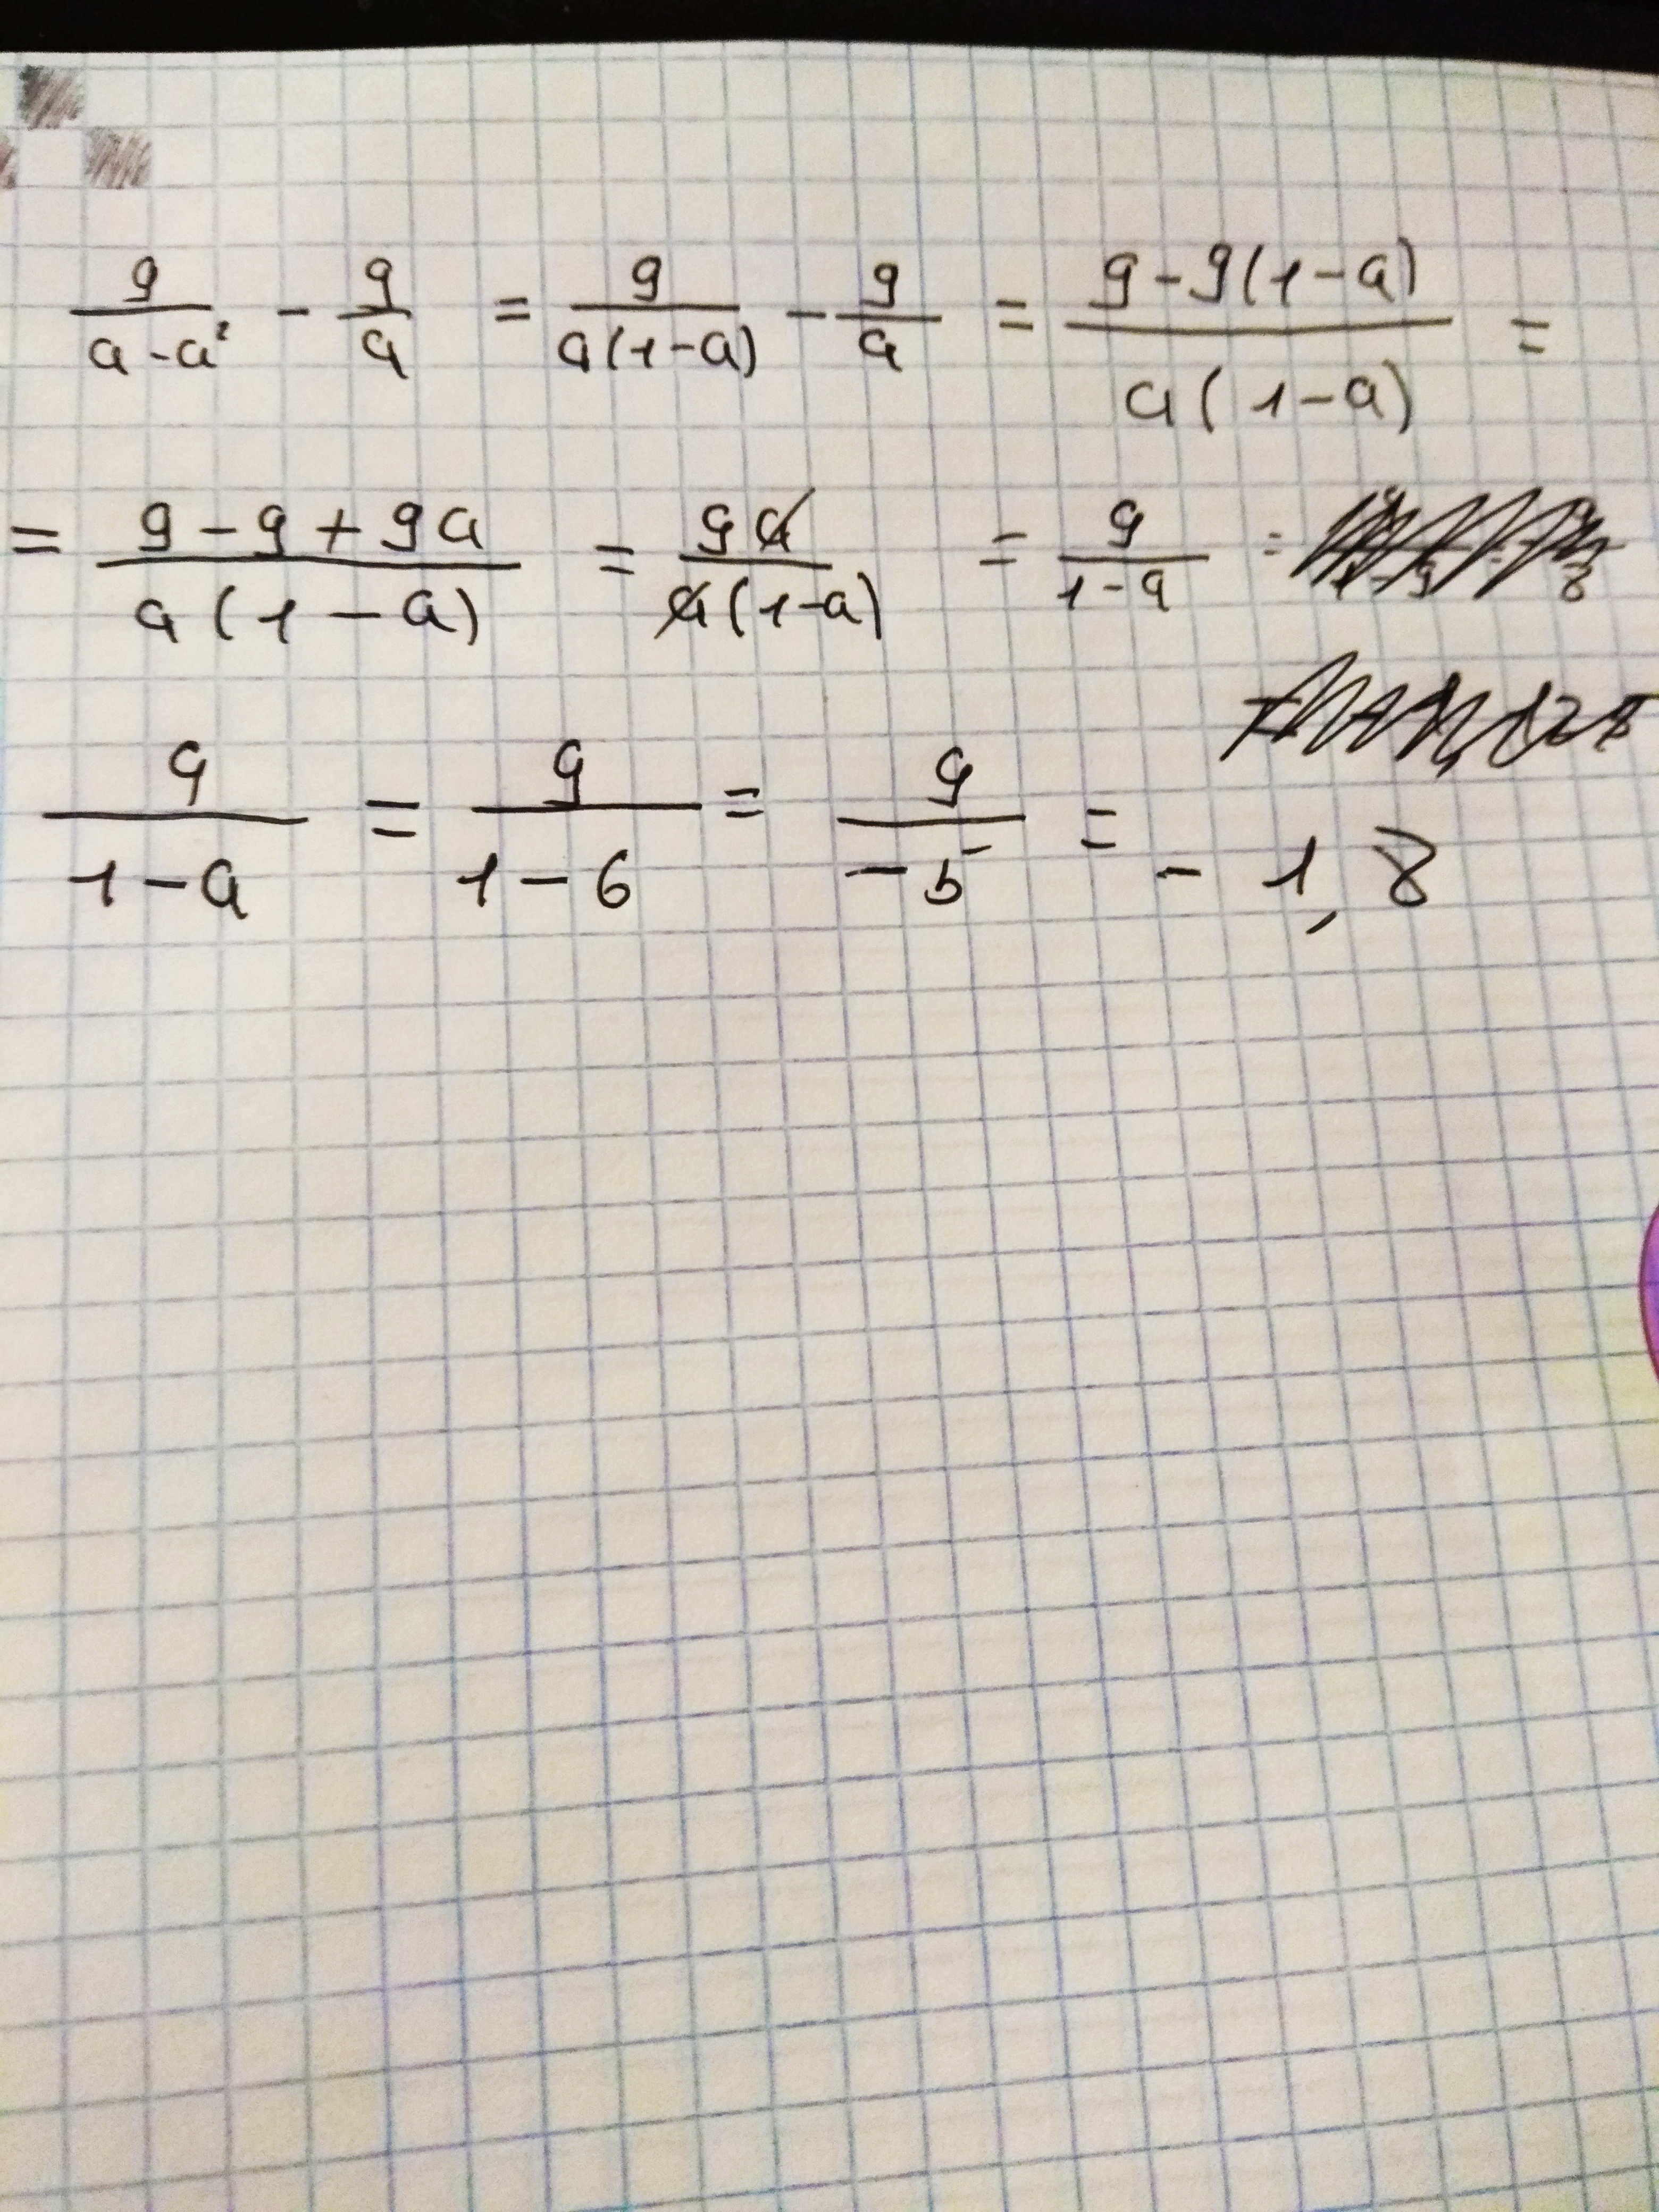 9/(a-a²) - 9/a = 9/(a(1-a)) - 9/a = (9-9(1-a))/(a(1-a)) =
= (9-9+9a)/(a(1-a)) = 9a/(a(1-a)) = 9/(1-a) =
9/(1-a) = 9/(1-6) = 9/(-5) = -1,8